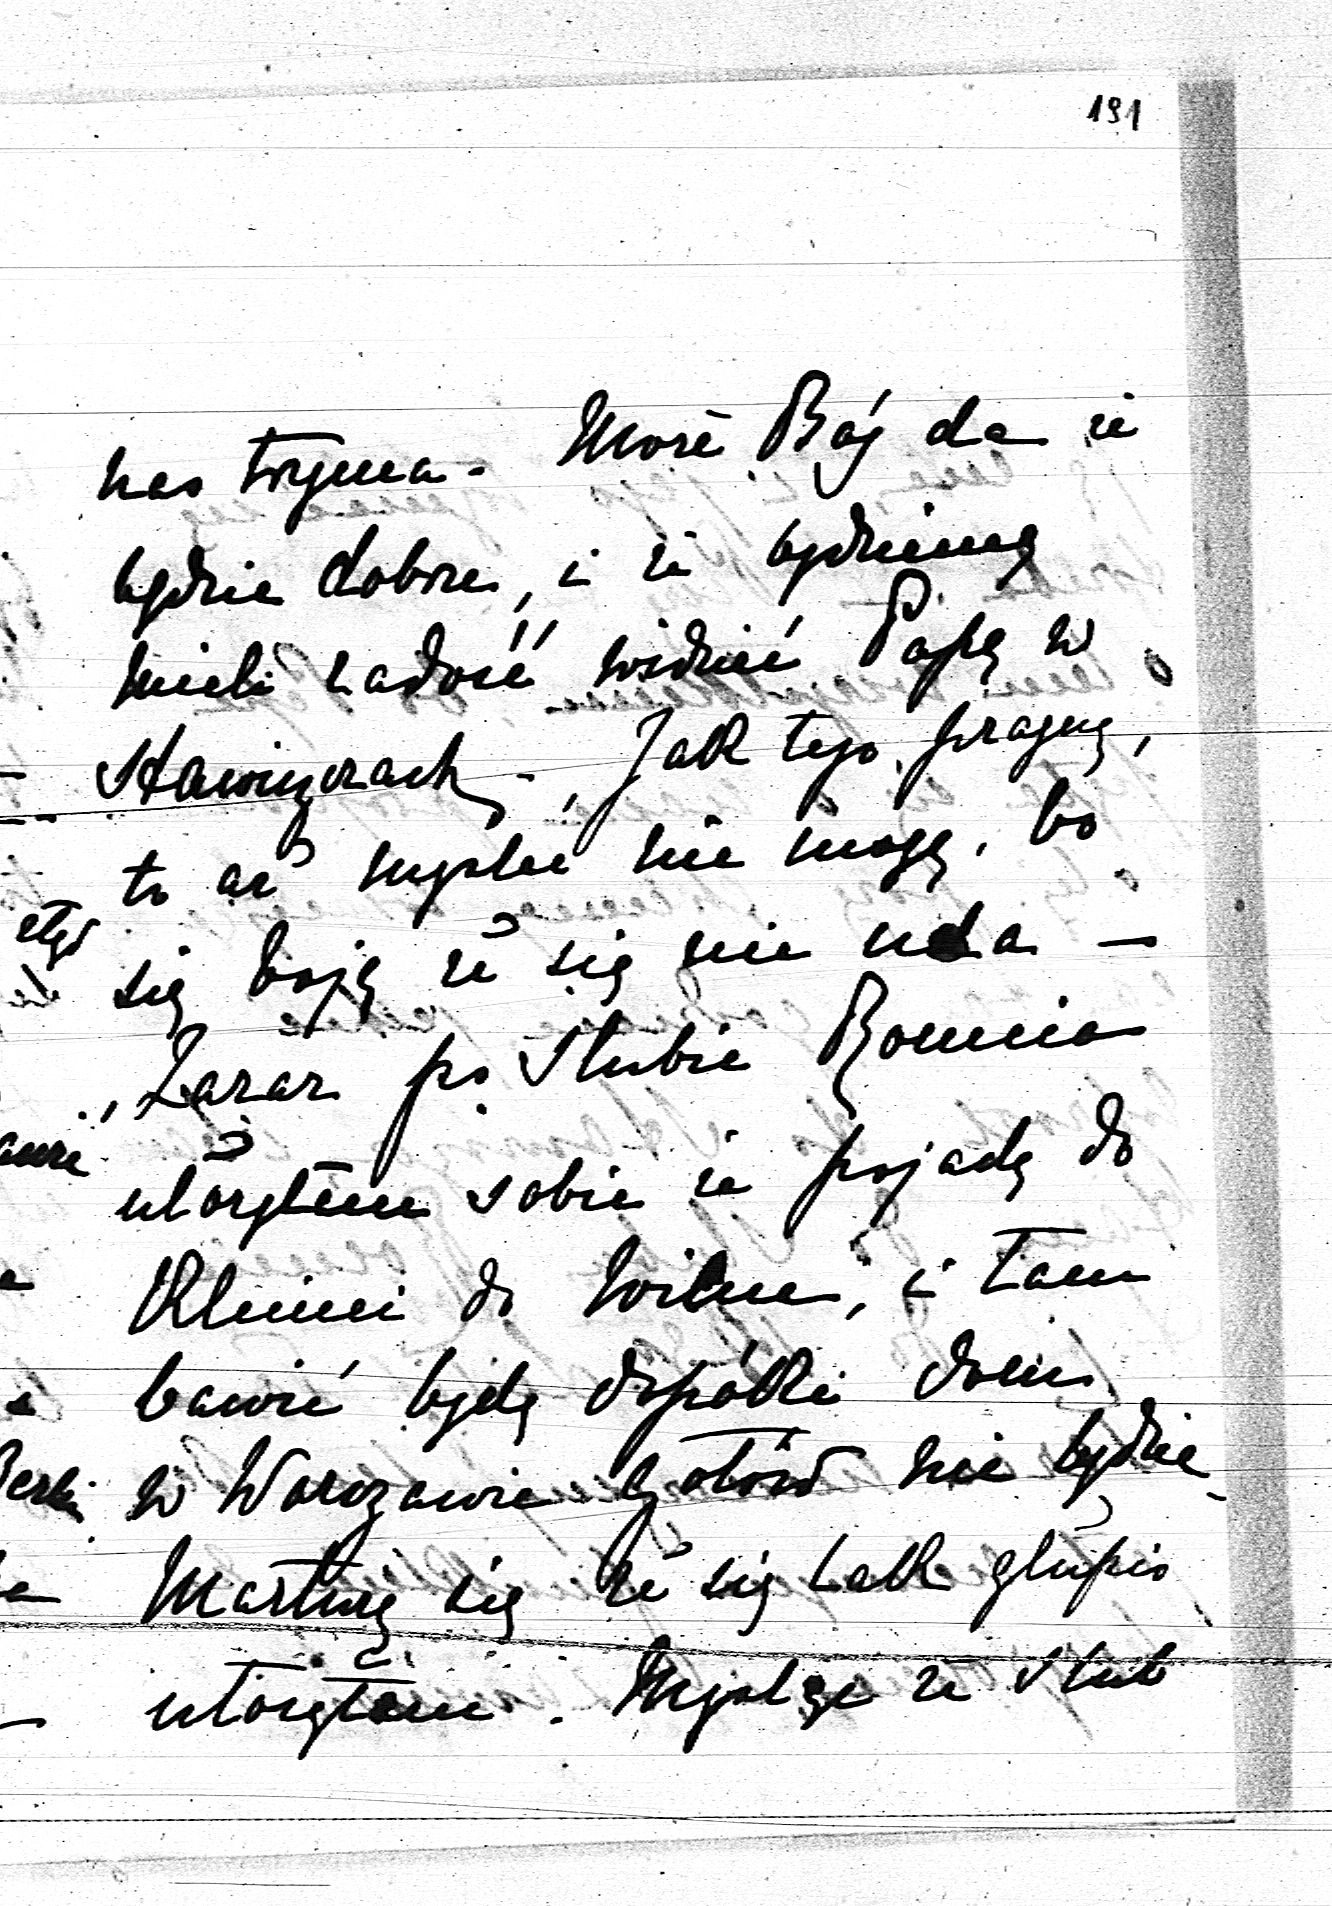 191
nas trzyma. Może Bóg da że
będzie dobrze, i że będziemy
mieli radość widzieć Papę w
Jak tego pragnę,
to aż myśleć nie mogę, bo
się boję że się nie uda —
Zaraz po ślubie Romcia
ułożyłem sobie że pojadę do
Klimci do Wilna, i tam
bawić będę dopóki dom
w Warszawie gotów nie będzie
Martwię się że się tak głupio
ułożyłem. Myślę że ślub